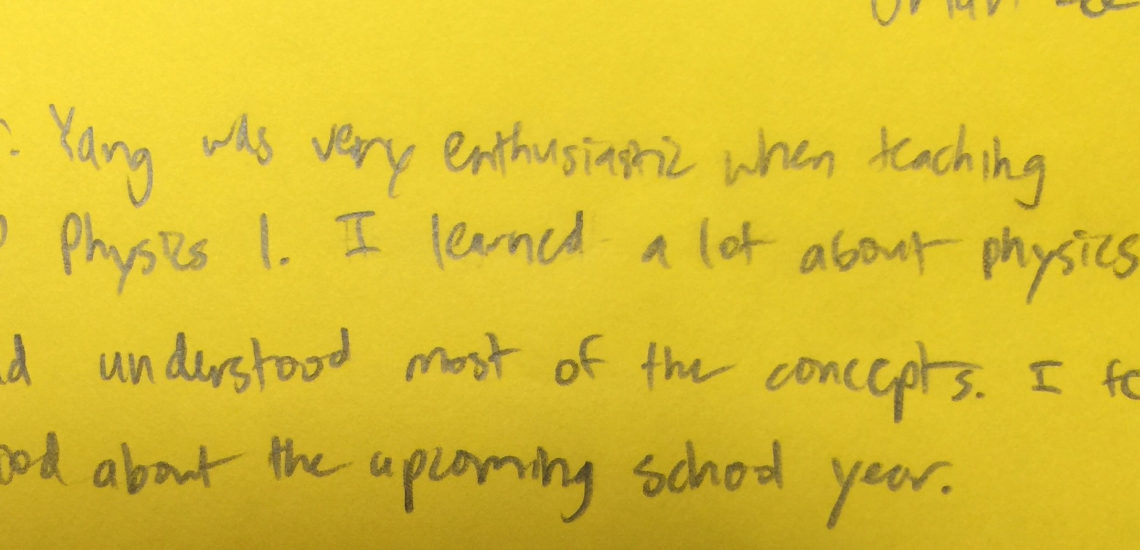 Yang was very enthusiastic when teaching
Physics 1. I learned a lot about physics
understood most of the concepts. I
about the upcoming school year.